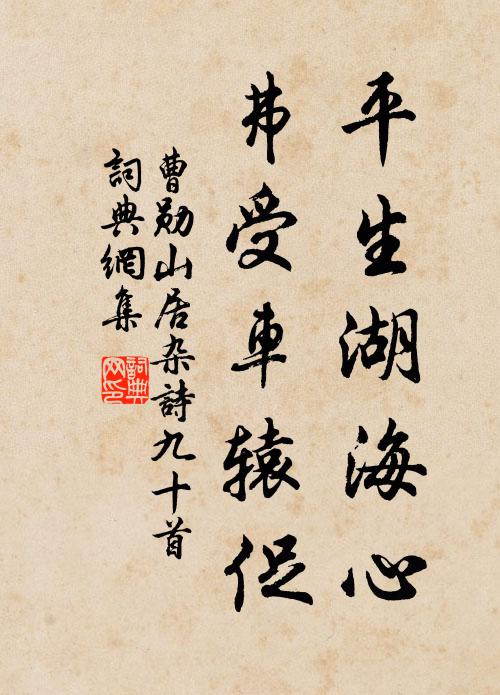 平生湖海心
弗受車辕促
曹勋山居杂詩九十首
詞典網集
詞典网印